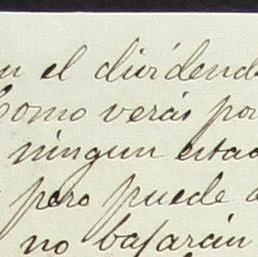 el dividend
Como verás po
ningun esta
pero puede
no bajarán